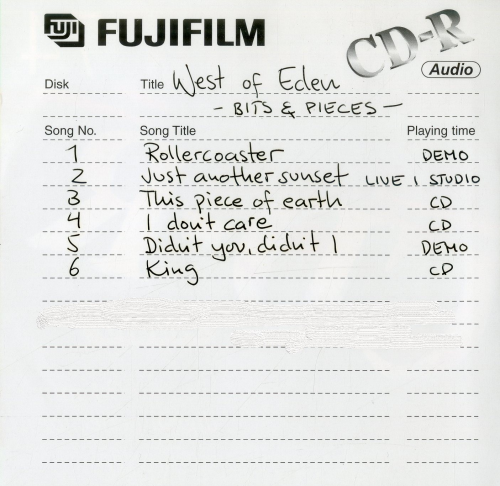 FUJI FUJIFILM
CD-R
Audio
Disk Title West of Eden
- BITS & PIECES -
Song No. Song Title Playing time
1 Rollercoaster DEMO
2 Just another sunset LIVE I STUDIO
3 This piece of earth CD
4 I don't care CD
5 Didn't you, didn't I DEMO
6 King CD